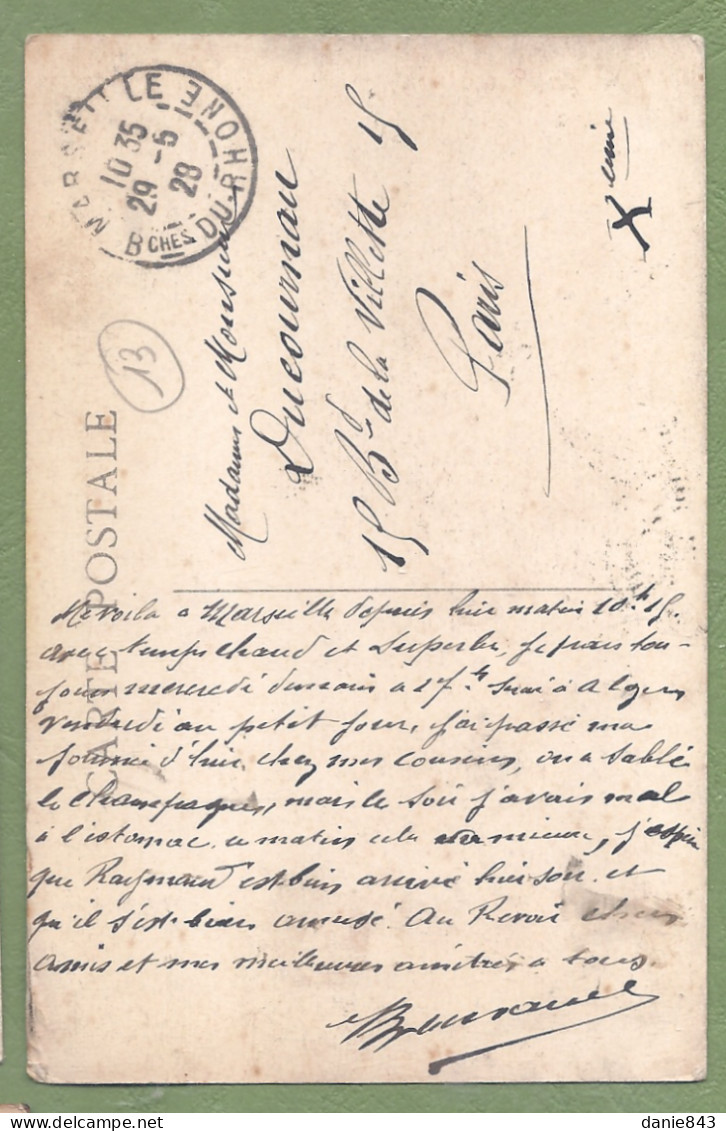 MARSEILLE
10 35
29 - 5
28
BCHES DU RHONE
13
CARTE POSTALE
Madame et Monsieur
Ducournau
15 Bd de la Villette 15
Paris
Xeme
Me voila a Marseille depuis hier matin 10h 15.
avec temps chaud et superbe, je pars tou-
jours mercredi demain a 17h serai à Alger
vendredi au petit jour, j'ai passé ma
journée d'hier chez mes cousins, on a sablé
le champagne, mais le soir j'avais mal
à l'estomac ce matin cela va mieux, j'espère
que Raymond est bien arrivé hier soir et
qu'il s'est bien amusé. Au Revoir chers
amis et mes meilleures amitiés a tous.
danie843